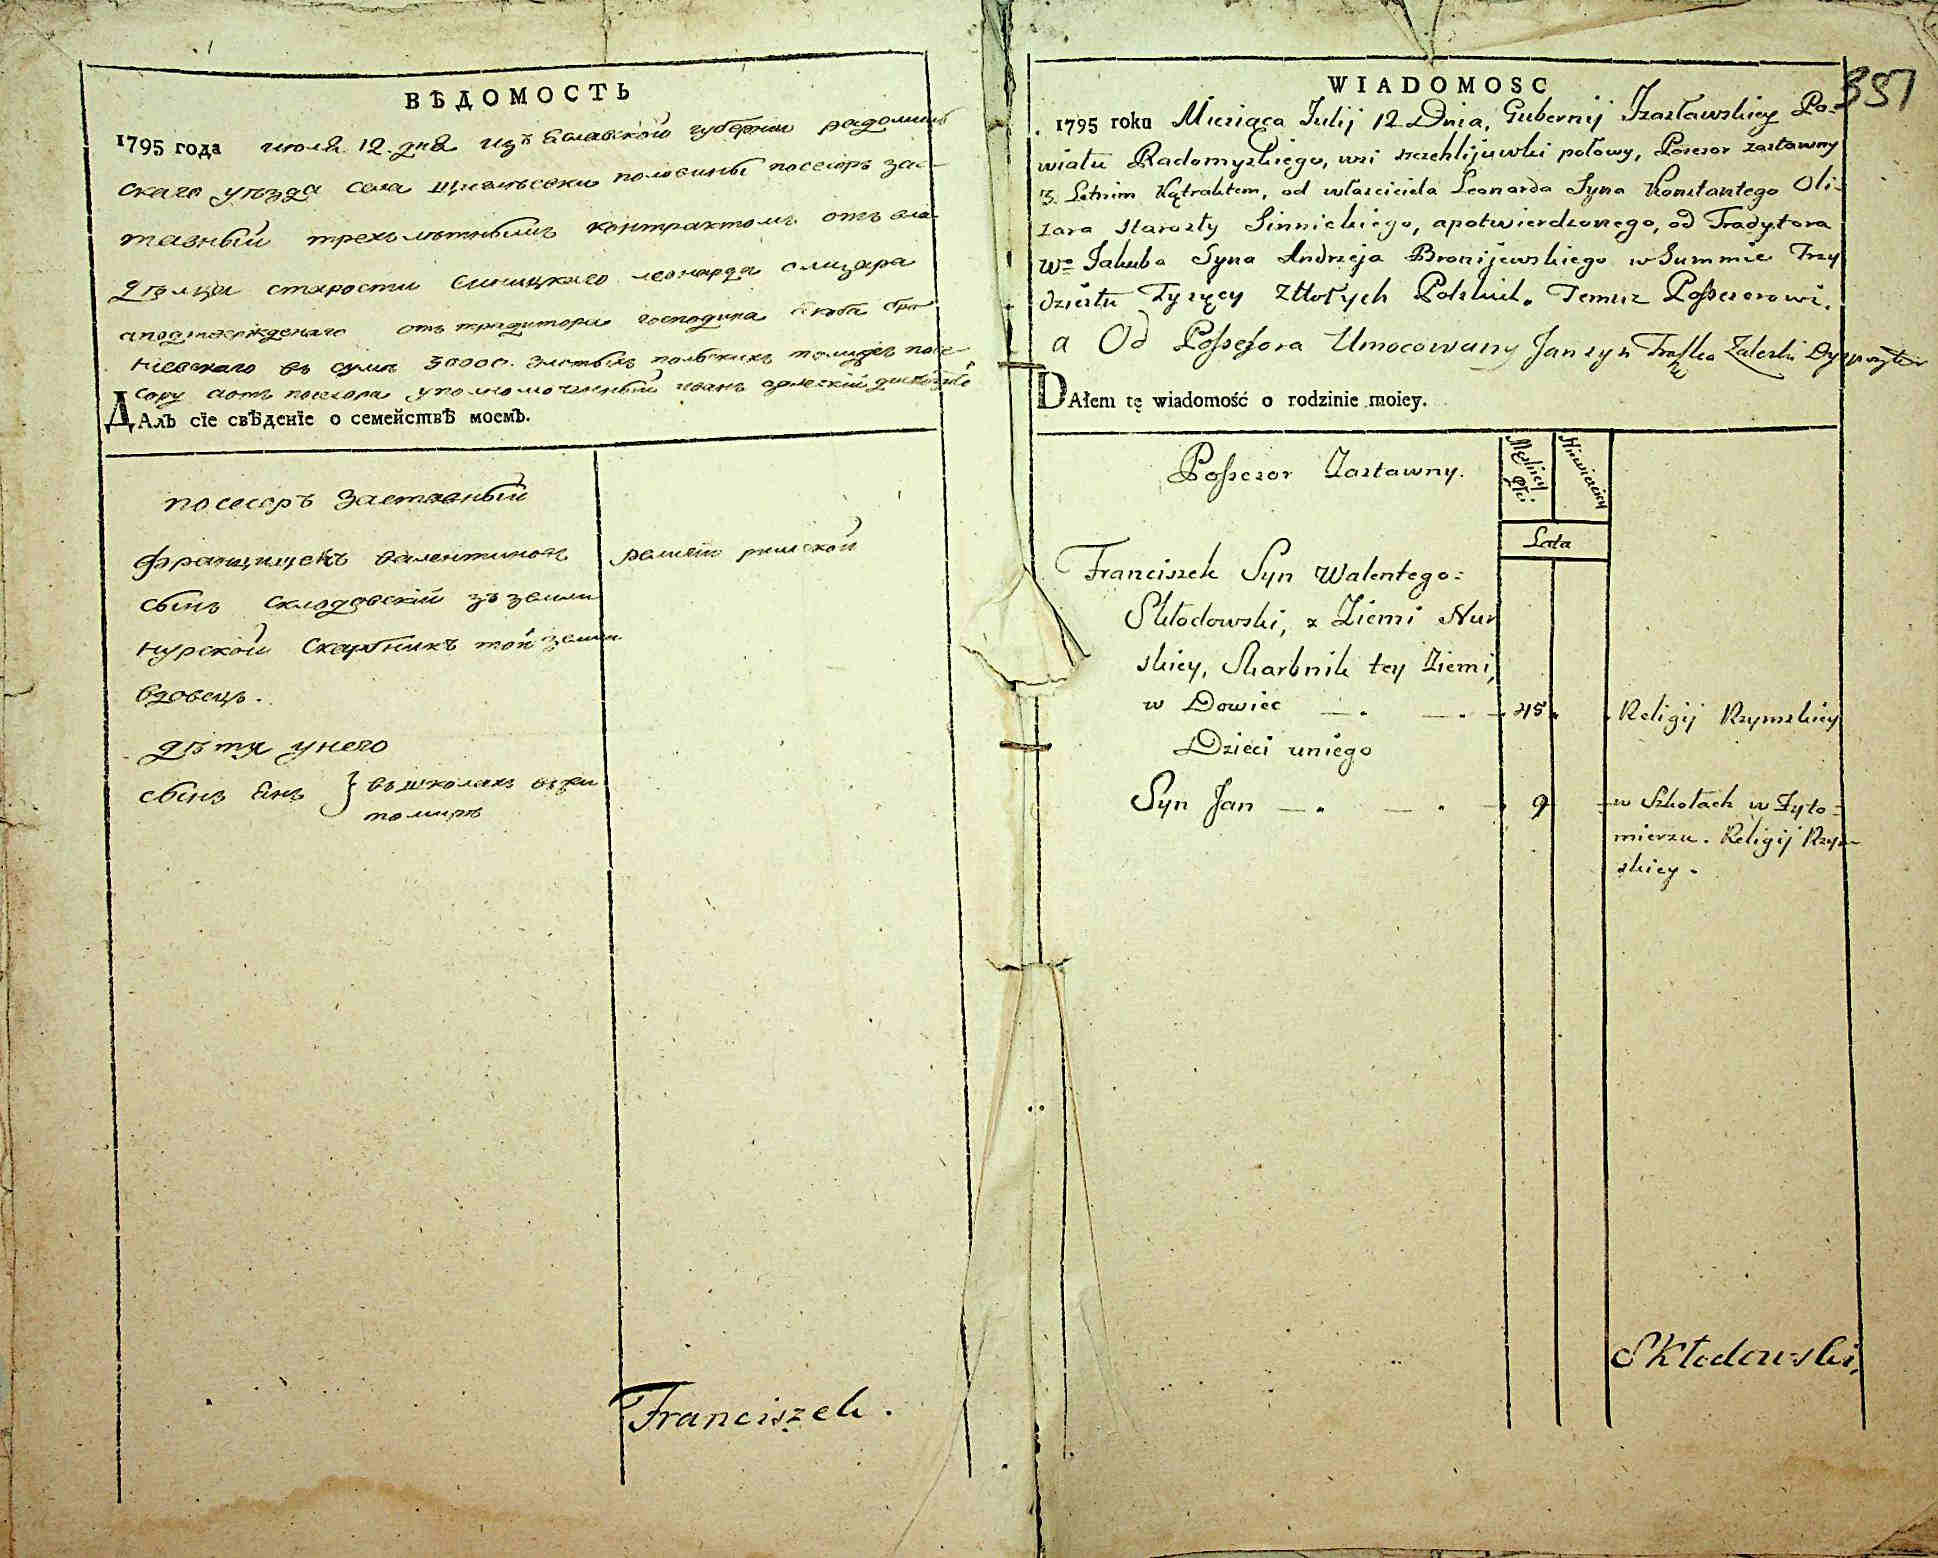 ВѢДОМОСТЬ
1795 года июля 12. дня изъ Еславской губернии радомиш
скаго уѣзда села половины посесоръ зас-
тавный трехълѣтнымъ контрактомъ отъ вла-
дѣлца старости синицкаго леонарда олизара
аподтвержденаго отъ традитора господина якоба бро-
ниевскаго въ сумѣ 30000. злотыхъ польскихъ томуже посе-
сору аотъ посесора уполномоченный иванъ залескій
ДАлЪ сїе свѢденїе о семействѢ моемЪ.
посесоръ заставный
францишекъ валентиновъ
сынъ склодовскій зъ земли
нурской скарбникъ той земли
вдовецъ.
релии римской
дѣти унего
сынъ Янъ } въ школахъ въ жи
томирѣ
Franciszek.
351
WIADOMOSC
1795 roku Miesiąca Julij 12 Dnia, Gubernij Izasławskiey Po-
wiatu Radomyskiego, wsi połowy, Posesor zastawny
3. Letnim Kątraktem, od właściciela Leonarda Syna Konstantego Oli-
zara Starosty Sinnickiego, apotwierdzonego, od Tradytora
Wo Jakuba Syna Andrzeja Bronijewskiego w Summie Trzy
dziestu Tysięcy Złłotych Polskich. Temuz Possesorowi.
a Od Possesora Umocowany Jan syn Zaleski
DAłem tę wiadomość o rodzinie moiey.
Possesor Zastawny.
Męskiey Płci
Niewieściey
Lata
Franciszek Syn Walentego=
Skłodowski, z Ziemi Nur
skiey, Skarbnik tey Ziemi,
w Dowiec — . — . 45. Religij Rzymskiey
Dzieci uniego
Syn Jan — . — . 9 w Szkołach w Żyto=
mierzu. Religij Rzym
skiey.
Skłodowski,